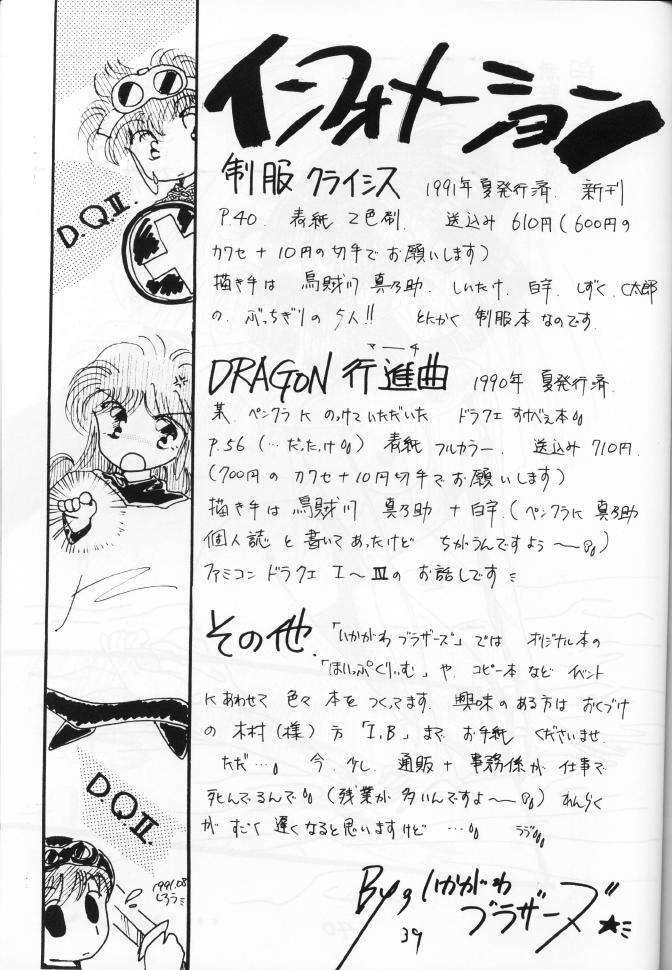 インフォメーション
制服 クライシス 1991年夏発行済. 新刊
P.40. 表紙 2色刷. 送込み 610円(600円の
カワセ + 10円の切手で お願いします)
描き手は 烏賊川 真乃助. しいたけ. 白宇. しずく. C太郎
の. ぶっちぎりの 5人!! とにかく 制服本 なのです.
マーチ
DRAGON 行進曲 1990年 夏発行済.
某. ペンクラに のっけていただいた ドラクエ すけべえ本。
P.56 (…だったけ。) 表紙 フルカラー. 送込み 710円.
(700円の カワセ+10円切手で お願いします)
描き手は 烏賊川 真乃助 + 白宇.(ペンクラに 真乃助
個人誌 と 書いて あったけど ちがうんですよう〜。)
ファミコン ドラクエ I〜IVの お話しです
その他. 「いかがわ ブラザーズ」では オリジナル本の
「ほいっぷくりいむ」や. コピー本 など イベント
に あわせて 色々 本を つくってます. 興味の ある方は おくづけ
の 木村(様) 方 「I.B」まで お手紙 くださいませ.
ただ…。 今. 少し. 通販 + 事務係が 仕事で
死んでるんで。(残業が 多いんですよ〜。) れんらく
が すごく 遅くなると思いますけど …。
By いかがわ
ブラザーズ
39
D.Q.II.
D.Q.II.
1991.08
しろう